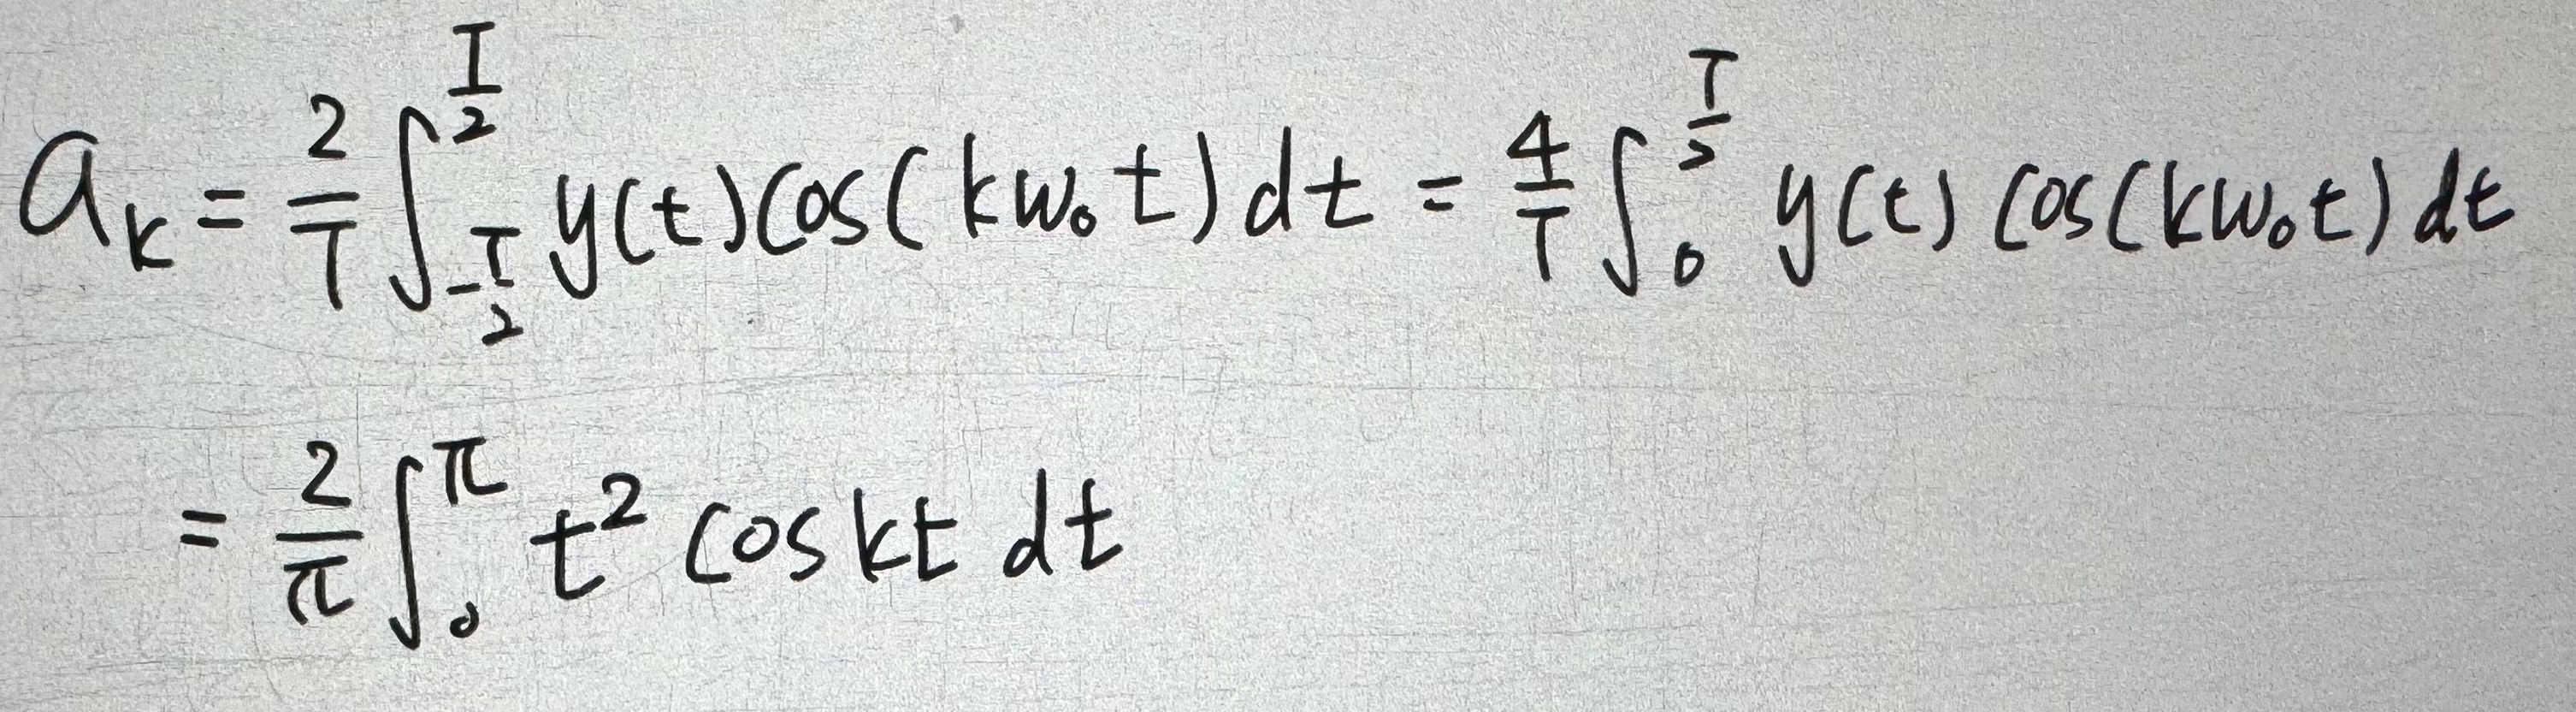 a_k = \frac{2}{T} \int_{-\frac{T}{2}}^{\frac{T}{2}} y(t) cos(kw_0 t) dt = \frac{4}{T} \int_0^{\frac{T}{2}} y(t) cos(kw_0 t) dt
= \frac{2}{π} \int_0^π t^2 cos kt dt